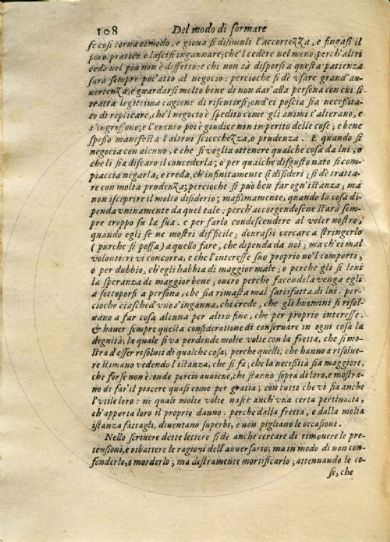 108 Del modo di formare
se così torna comodo, e gioua si disimuli l'accortezza, e fingasi il
poco pratico e lascisi ingannare; che'l cedere nel meno, perch'altri
ceda nel più non è difetto: e chi non sà disporsi a questa patienza
sarà sempre poc'atto al negocio: percioche si dè vsare grand'au-
uertenza, e guardarsi molto bene di non dar'alla persona con cui si
tratta legittima cagione di risentirsi, ond'ei poscia sia necessita-
to di replicare, che'l negocio è spedito come gli animi s'alterano, e
s'ingrossano; e l'entrar poi è giudice non imperito delle cose, e bene
spesso manifesta l'altrui sciocchezza, o prudenza. E quando si
negocia con alcuno, e che si voglia ottenere qualche cosa da lui, o
che li sia discaro il concederla; o per qualche disgusto nato si com-
piaccia negarla, e creda, ch'infinitamente si disideri; si dè tratta-
re con molta prudenza; percioche si può ben far ogn'istanza, ma
non iscoprire il molto disiderio; massimamente, quando la cosa di-
penda vnicamente da quel tale; perch'accorgendosene starà sem-
pre troppo su la sua. e per farlo condescendere al voler nostro,
quando egli se ne mostri difficile, dourassi cercare a stringerlo
(purche si possa) a quello fare, che dipenda da noi; ma ch'ei mal
volontieri vi concorra, e che l'interesse suo proprio nol comporti,
o per dubbio, ch'egli habbia di maggior male; o perche gli si leui
la speranza di maggior bene; ouero perche facendola venga egli
a sottoporsi a persona, che sia rimasta mal satisfatta di lui. per-
cioche ciascheduno s'inganna, che crede, che gli huomini si risol-
uano a far cosa alcuna per altro fine, che per proprio interesse.
& hauer sempre questa consideratione di conseruare in ogni cosa la
degnità; la quale si va perdendo molte volte con la fretta, che si mo-
stra d'esser risoluti di qualche cosa; perche quelli, che hanno a risolue-
re stimano vedendo l'istanza, che si fà, che la necessità sia maggiore,
che forse non è. onde peruiene, che stanno sopra di loro, e mostra-
no di far'il piacere quasi come per gratia; con tutto che vi sia anche
l'vtile loro: ne' quali molte volte nasce anch'vna certa pertinacia,
ch'apporta loro il proprio danno: perche dalla fretta, e dalla molta
istanza fattagli, diuentano superbi, e non pigliano le occasioni.
Nello scriuere dette lettere si dè anche cercare di rimouere le pre-
tensioni, e ribattere le ragioni dell'auuersario; ma in modo di non con-
fonderlo, o morderlo; ma destramente mortificarlo; attenuando le co-
se, che